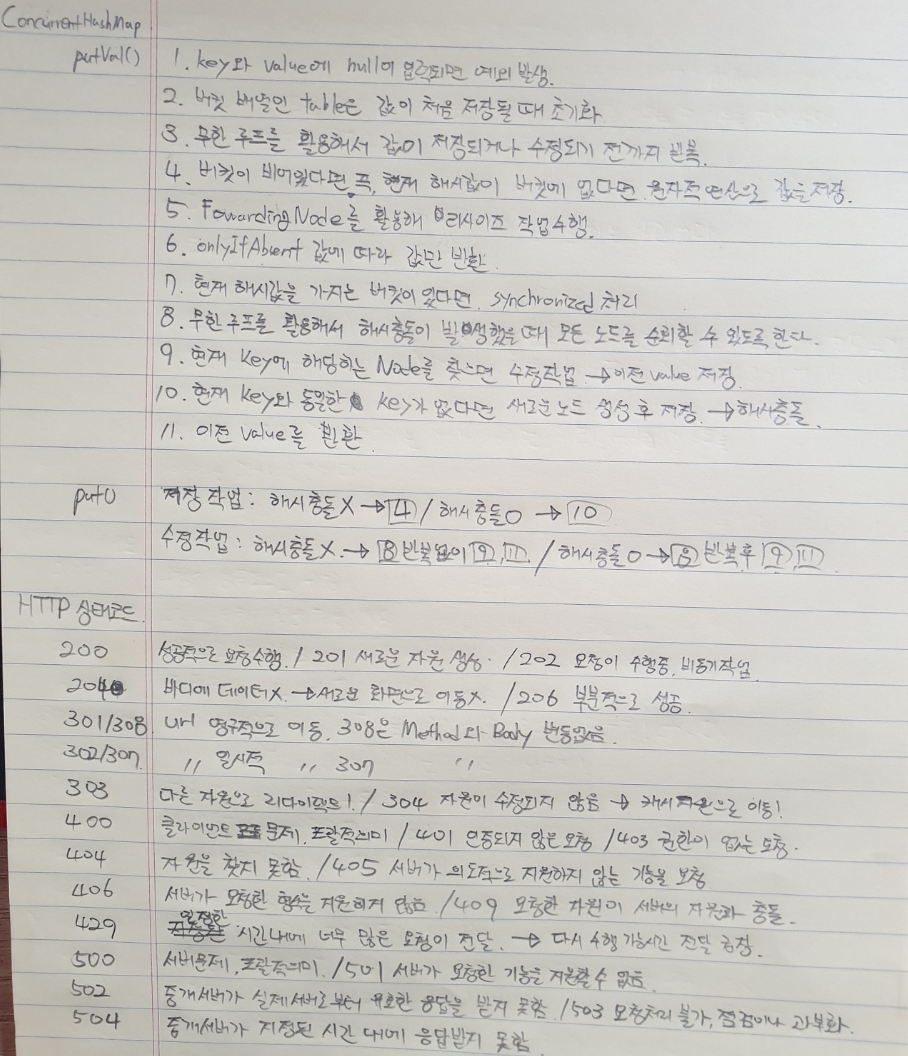 ConcurrentHashMap
putVal() 1. key와 value에 null이 입력되면 예외 발생.
2. 버킷 배열인 table은 값이 처음 저장될 때 초기화
3. 무한 루프를 활용해서 값이 저장되거나 수정되기 전까지 반복.
4. 버킷이 비어있다면 즉, 현재 해시값이 버킷에 없다면 원자적 연산으로 값을 저장.
5. FowardingNode를 활용해 리사이즈 작업수행.
6. onlyIfAbsent 값에 따라 값만 반환
7. 현재 해시값을 가지는 버킷이 있다면. synchronized 처리
8. 무한 루프를 활용해서 해시충돌이 발생했을때 모든 노드를 순회할 수 있도록 한다.
9. 현재 Key에 해당하는 Node를 찾으면 수정작업 → 이전 value 저장.
10. 현재 key와 동일한 key가 없다면 새로운노드 생성 후 저장. → 해시충돌
11. 이전 value를 반환
put() 저장 작업 : 해시충돌 X → 4 / 해시충돌 O → 10
수정작업 : 해시충돌 X. → 8 반복없이 9, 11 / 해시충돌 O → 8 반복후 9, 11
HTTP 상태코드
200 성공적으로 요청수행. / 201 새로운 자원 생성. / 202 요청이 수행중, 비동기작업
204 바디에 데이터 X. → 새로운 화면으로 이동 X. / 206 부분적으로 성공
301/308 url 영구적으로 이동. 308은 Method와 Body 변동없음.
302/307 〃 일시적 〃 307 〃
303 다른 자원으로 리다이렉트! / 304 자원이 수정되지 않음 → 캐시 자원으로 이동!
400 클라이언트 문제, 포괄적의미 / 401 인증되지 않은 요청 / 403 권한이 없는 요청.
404 자원을 찾지 못함. / 405 서버가 의도적으로 지원하지 않는 기능을 요청
406 서버가 요청한 형식을 지원하지 않음 / 409 요청한 자원이 서버의 자원과 충돌.
429 일정한 시간내에 너무 많은 요청이 전달. → 다시 수행 가능시간 전달 권장.
500 서버문제, 포괄적의미. / 501 서버가 요청한 기능을 지원할 수 없음
502 중개서버가 실제서버로부터 유효한 응답을 받지 못함. / 503 요청처리 불가, 점검이나 과부화.
504 중개서버가 지정된 시간 내에 응답받지 못함.